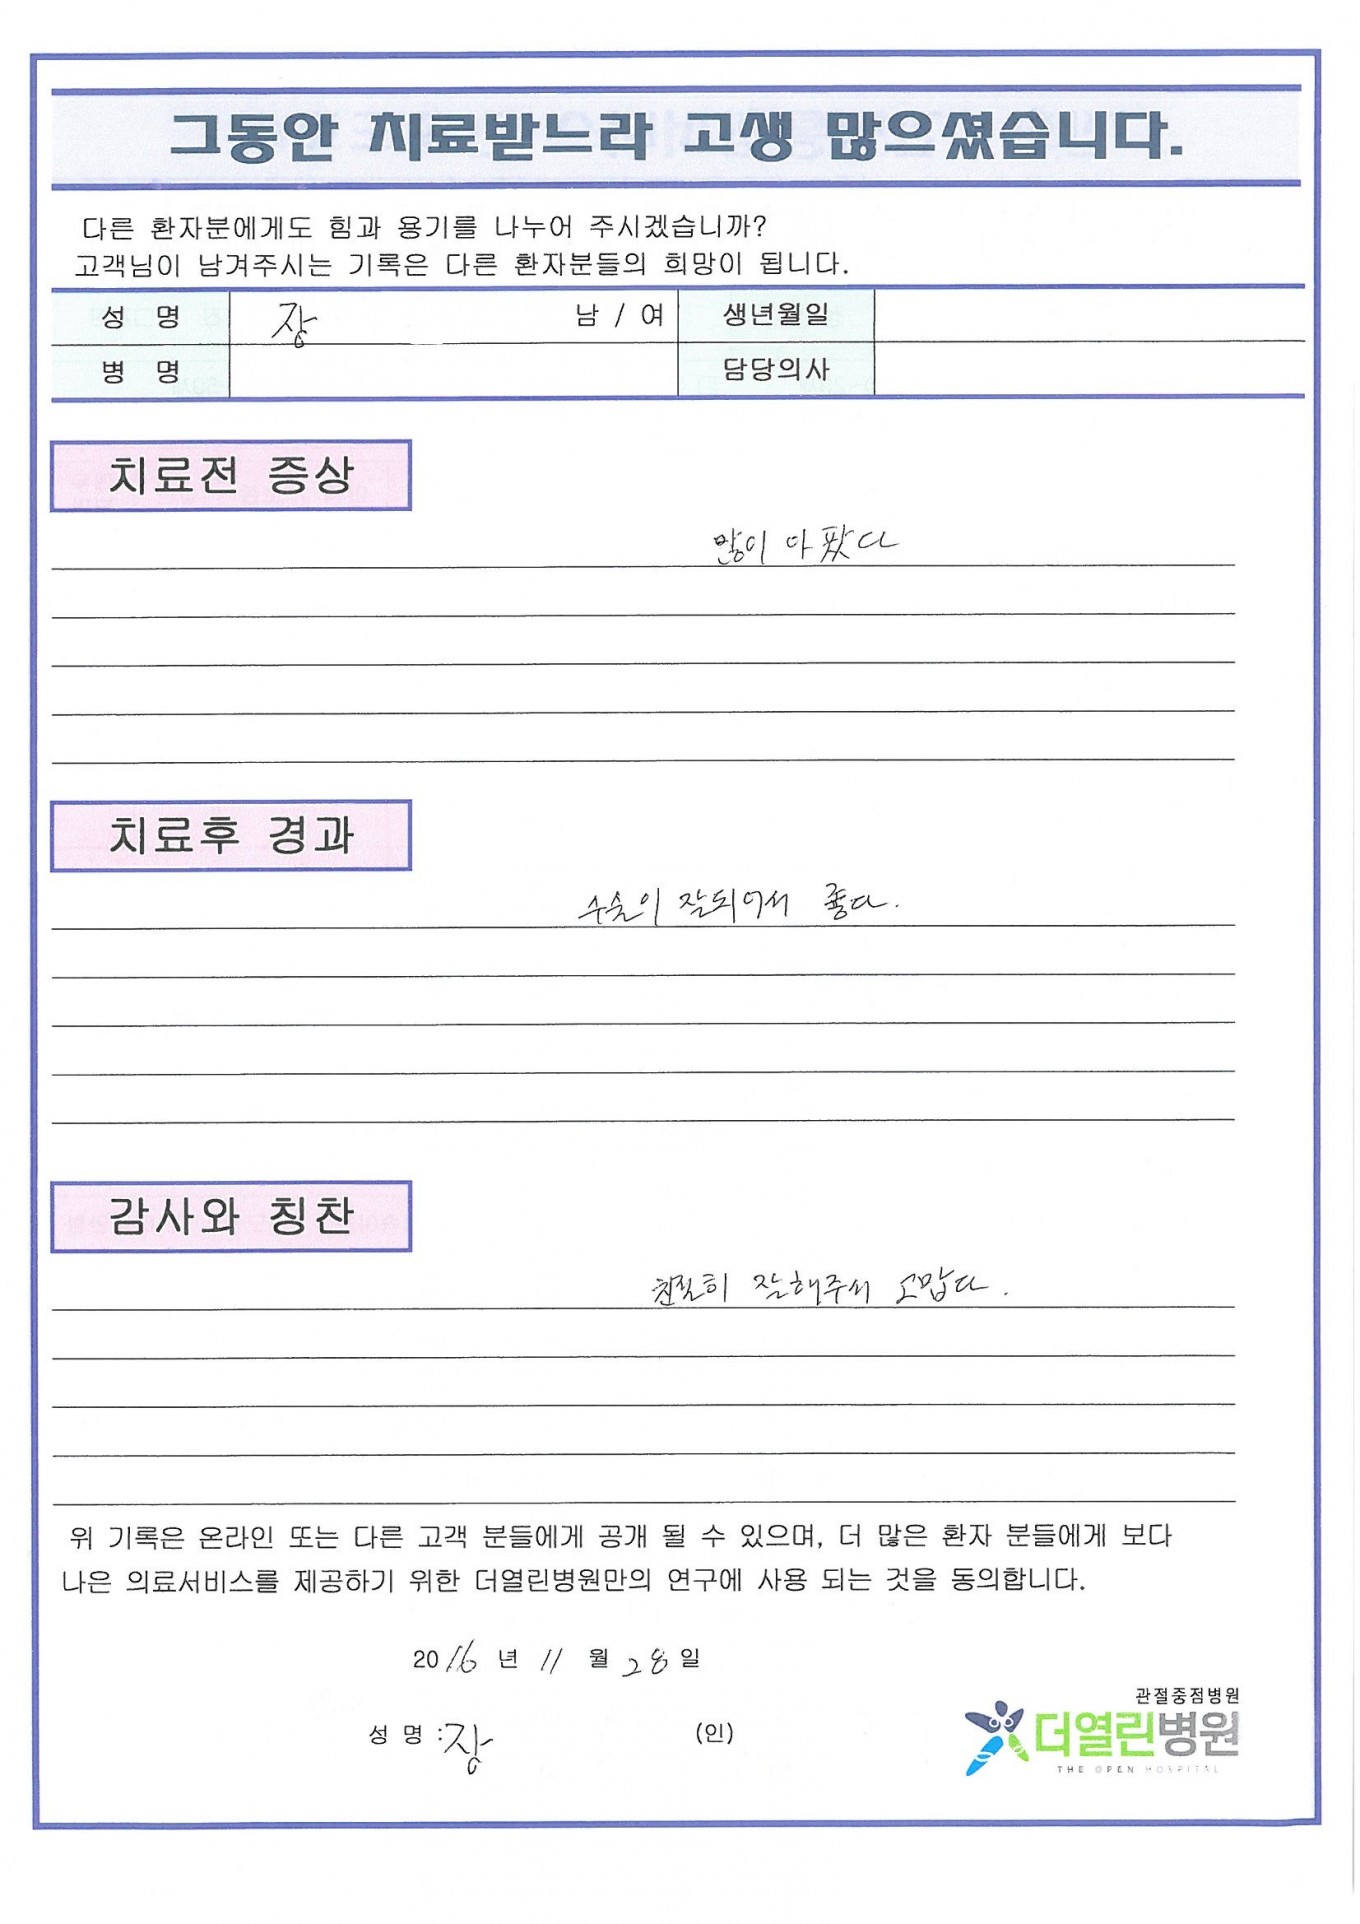 그동안 치료받느라 고생 많으셨습니다.
다른 환자분에게도 힘과 용기를 나누어 주시겠습니까?
고객님이 남겨주시는 기록은 다른 환자분들의 희망이 됩니다.
성 명 장 남 / 여 생년월일
병 명 담당의사
치료전 증상
많이 아팠다
치료후 경과
수술이 잘되어서 좋다.
감사와 칭찬
친절히 잘해주서 고맙다.
위 기록은 온라인 또는 다른 고객 분들에게 공개 될 수 있으며, 더 많은 환자 분들에게 보다
나은 의료서비스를 제공하기 위한 더열린병원만의 연구에 사용 되는 것을 동의합니다.
2016 년 11 월 28 일
성 명 : 장 (인)
관절중점병원
더열린병원
THE OPEN HOSPITAL